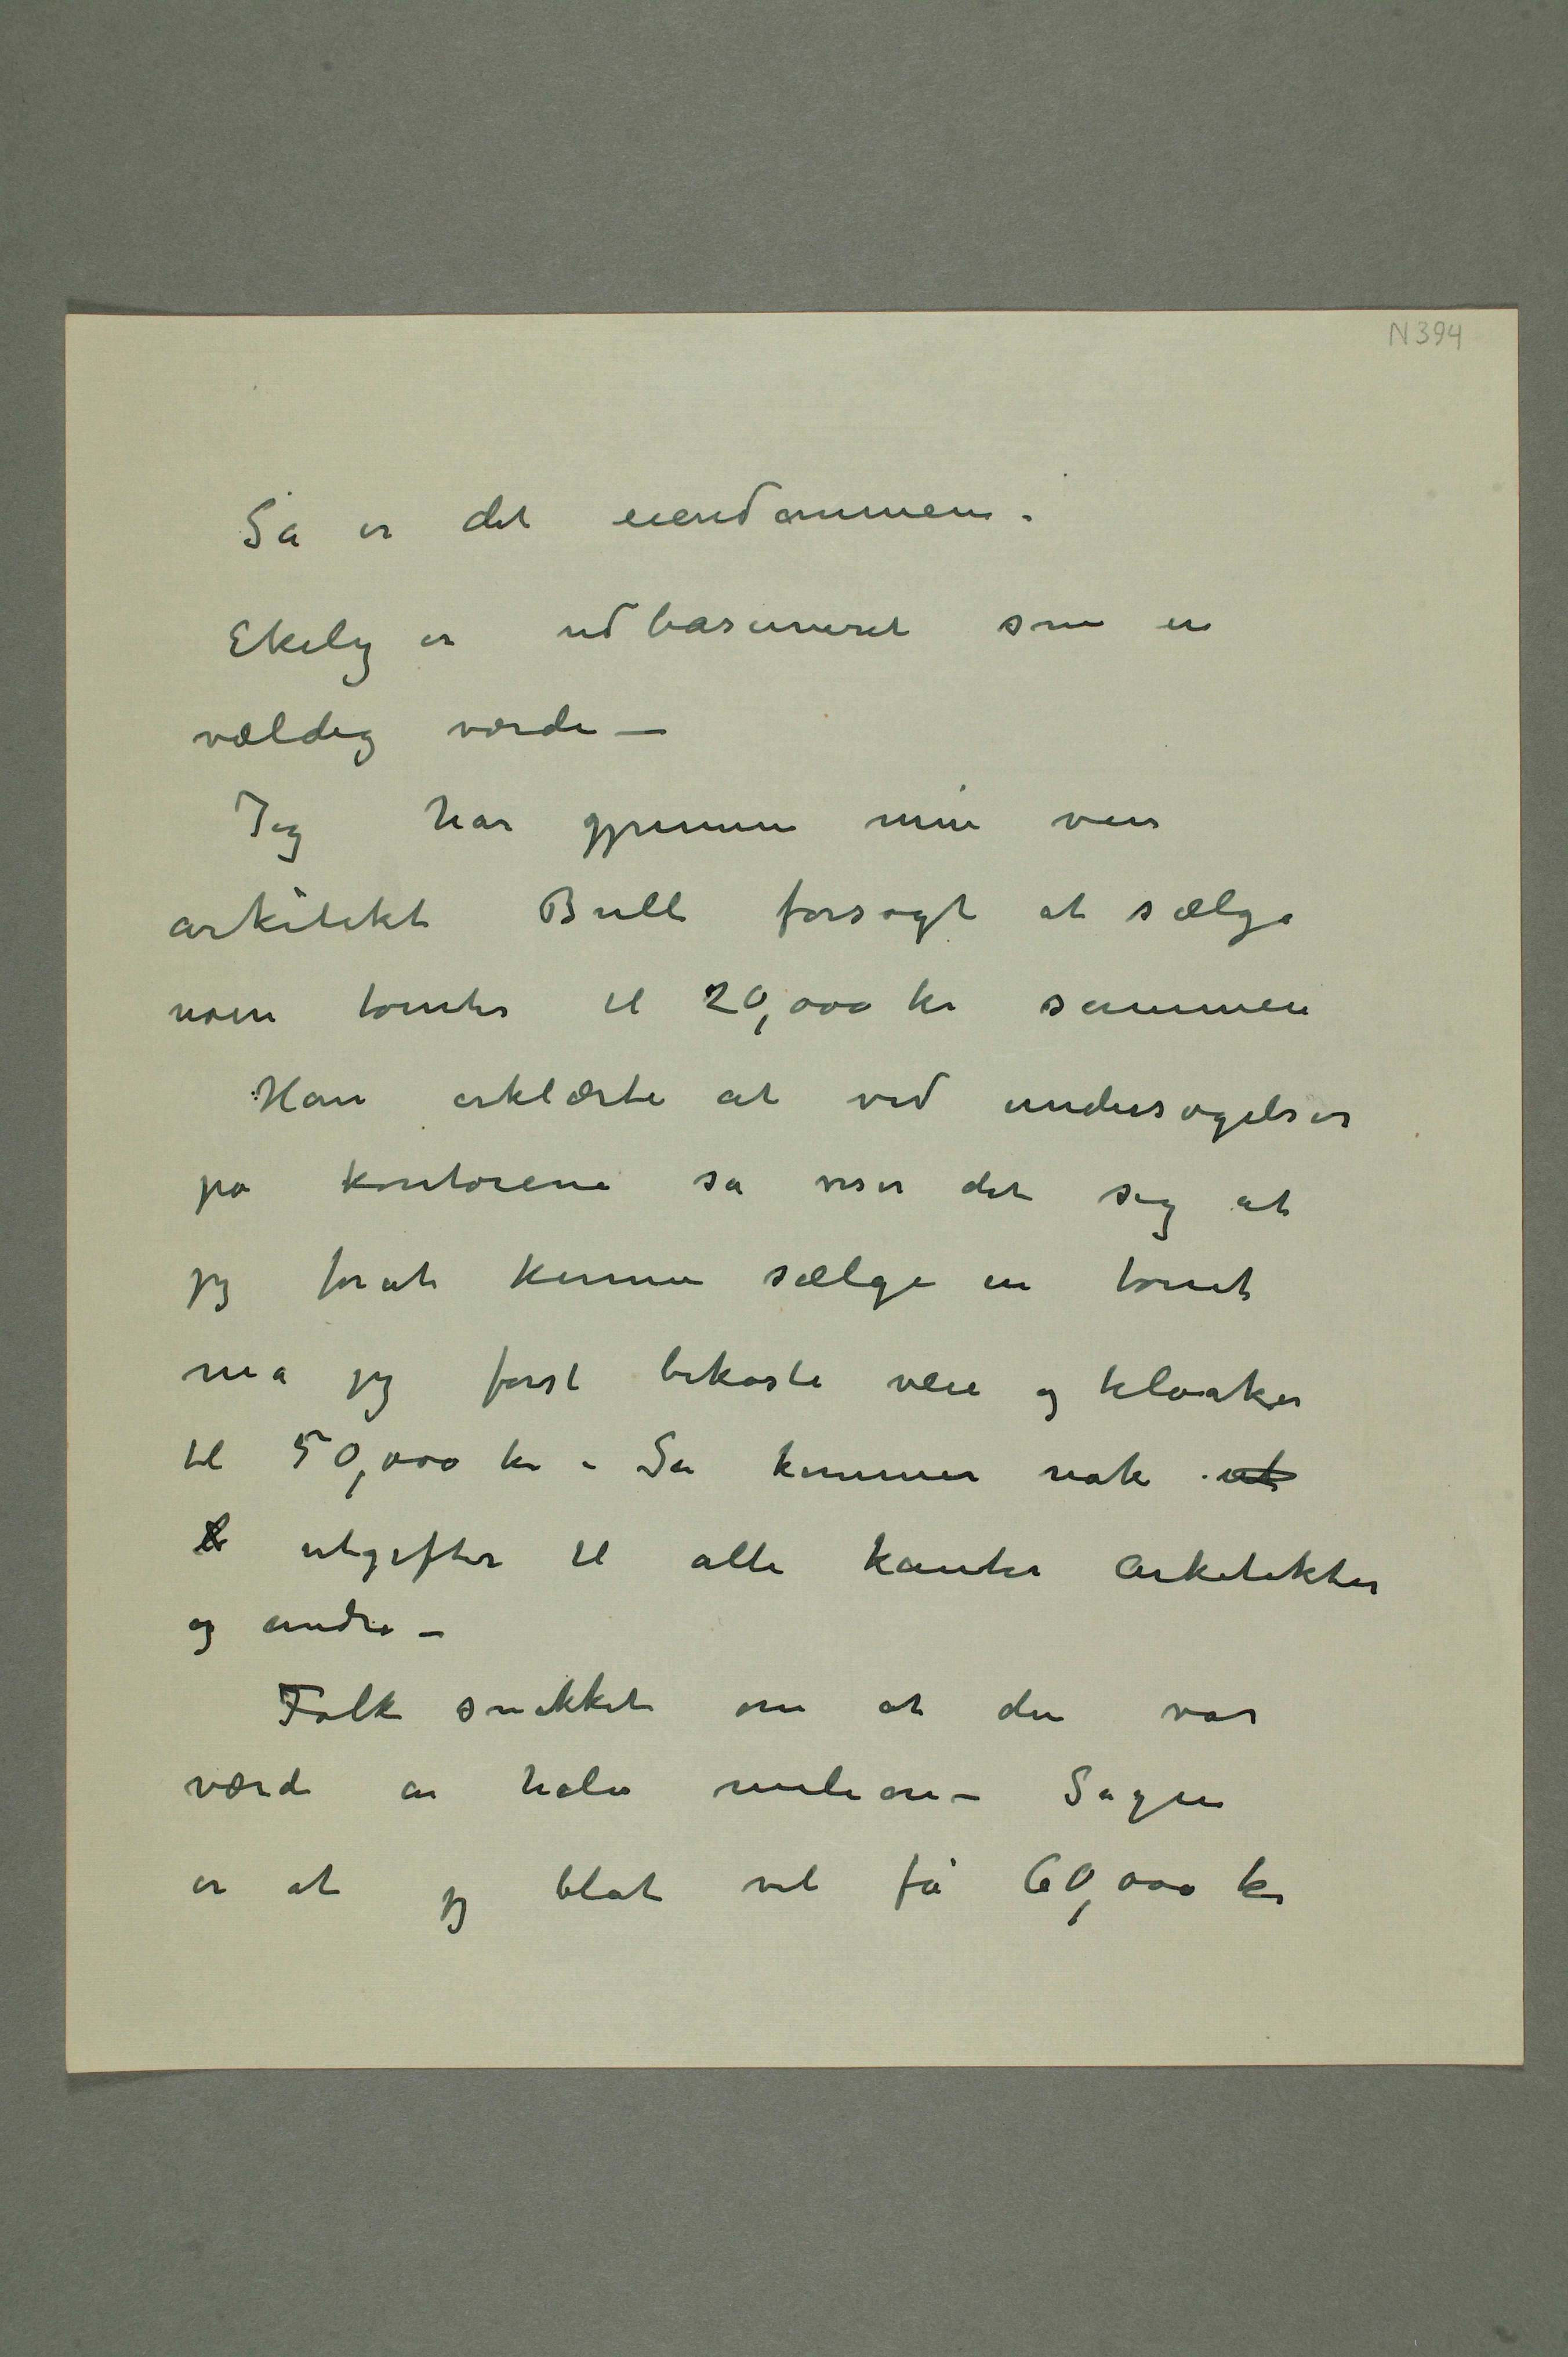 N 394
Så er det eiendommen.
Ekely er udbasuneret som en
vældig værdi –
Jeg har gjennem min ven
arkitekt Bull forsøgt at sælge
noen tomter til 20,000 kr sammen
Han erklærte at ved undersøgelser
på kontorene så viser det sig at
jeg forat kunne sælge en tomt
må jeg først bekoste veie og kloaker
til 50,000 kr – Så kommer nok at
utgifter til alle kanter arkitekter
og andre –
Folk snakket om at den var
værd en halv milion – Sagen
er at jeg blot vil få 60,000 kr